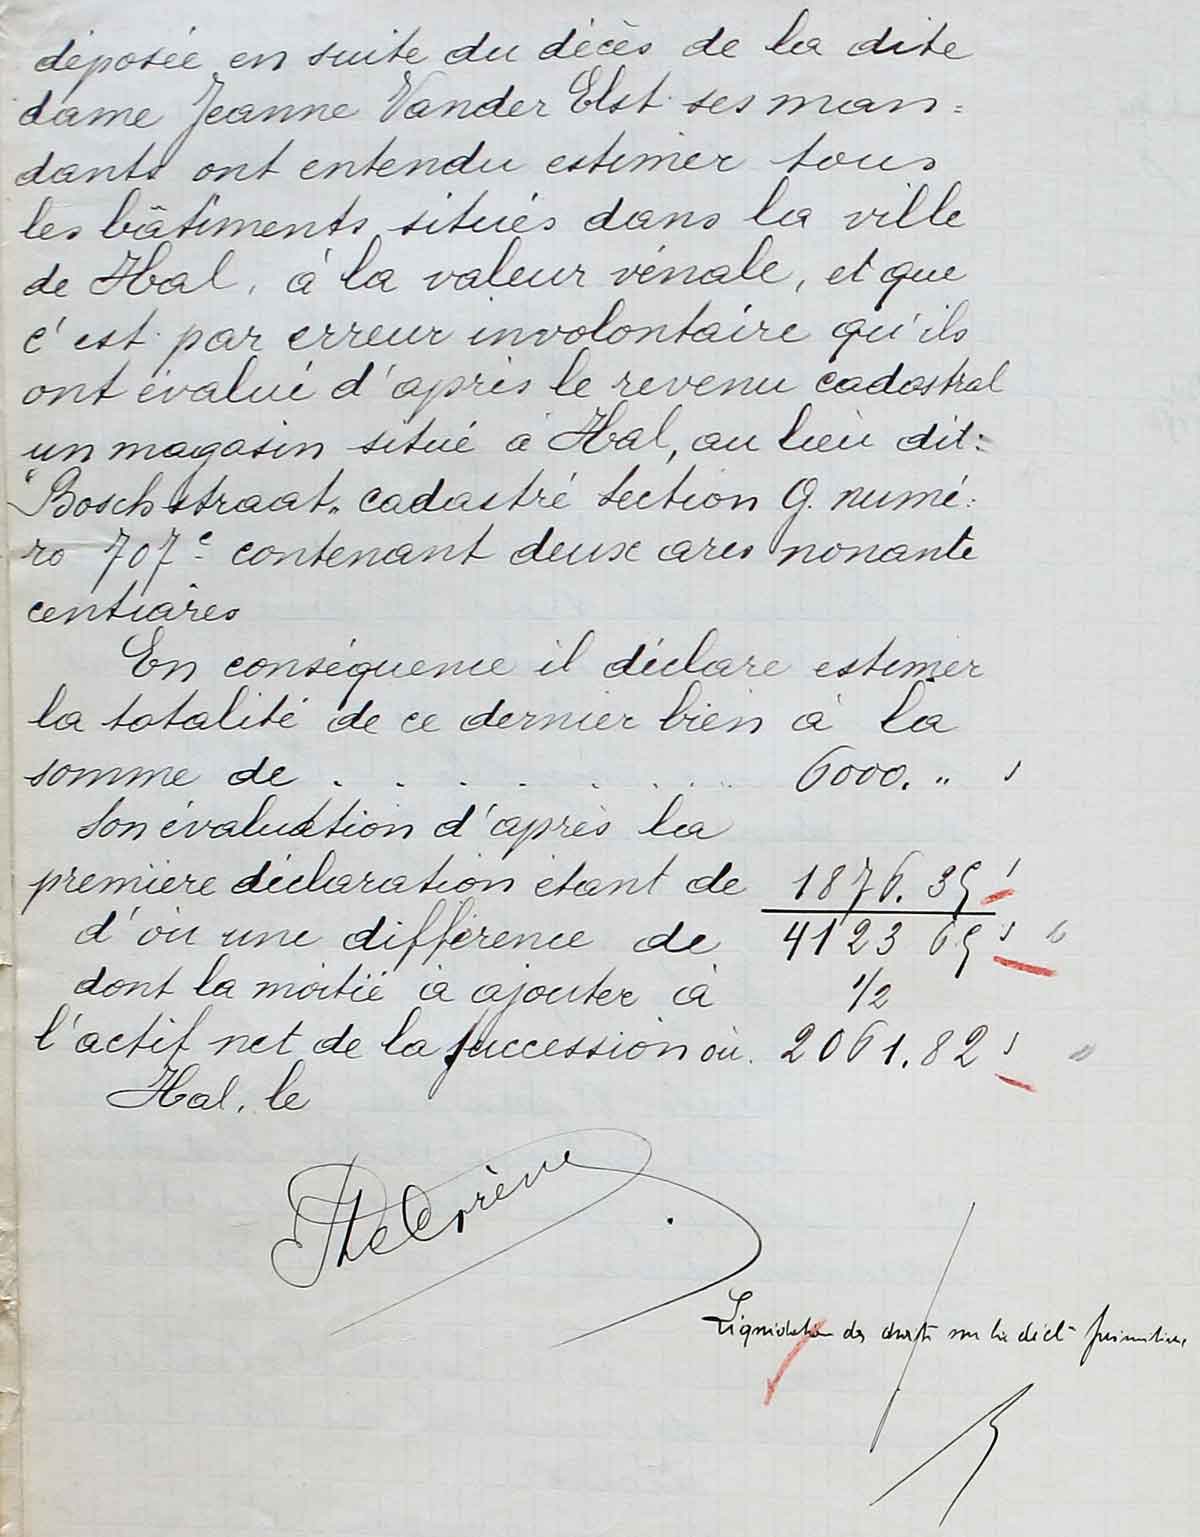 déposée en suite du décès de la dite
dame Jeanne Vander Elst ses man=
dants ont entendu estimer tous
les bâtiments situés dans la ville
de Hal, à la valeur vénale, et que
c'est par erreur involontaire qu'ils
ont évalué d'après le revenu cadastral
un magasin situé à Hal, au lieu dit:
"Boschstraat" cadastré section G. numé=
ro 707c contenant deux ares nonante
centiares
En conséquence il déclare estimer
la totalité de ce dernier bien à la
somme de . . . . . . . . 6000. "
Son évaluation d'après la
première déclaration étant de 1876.35
d'où une différence de 4123 65
dont la moitié à ajouter à 1/2
l'actif net de la succession ou 2061.82
Hal, le
Liquidation des droits sur la décl. primitive